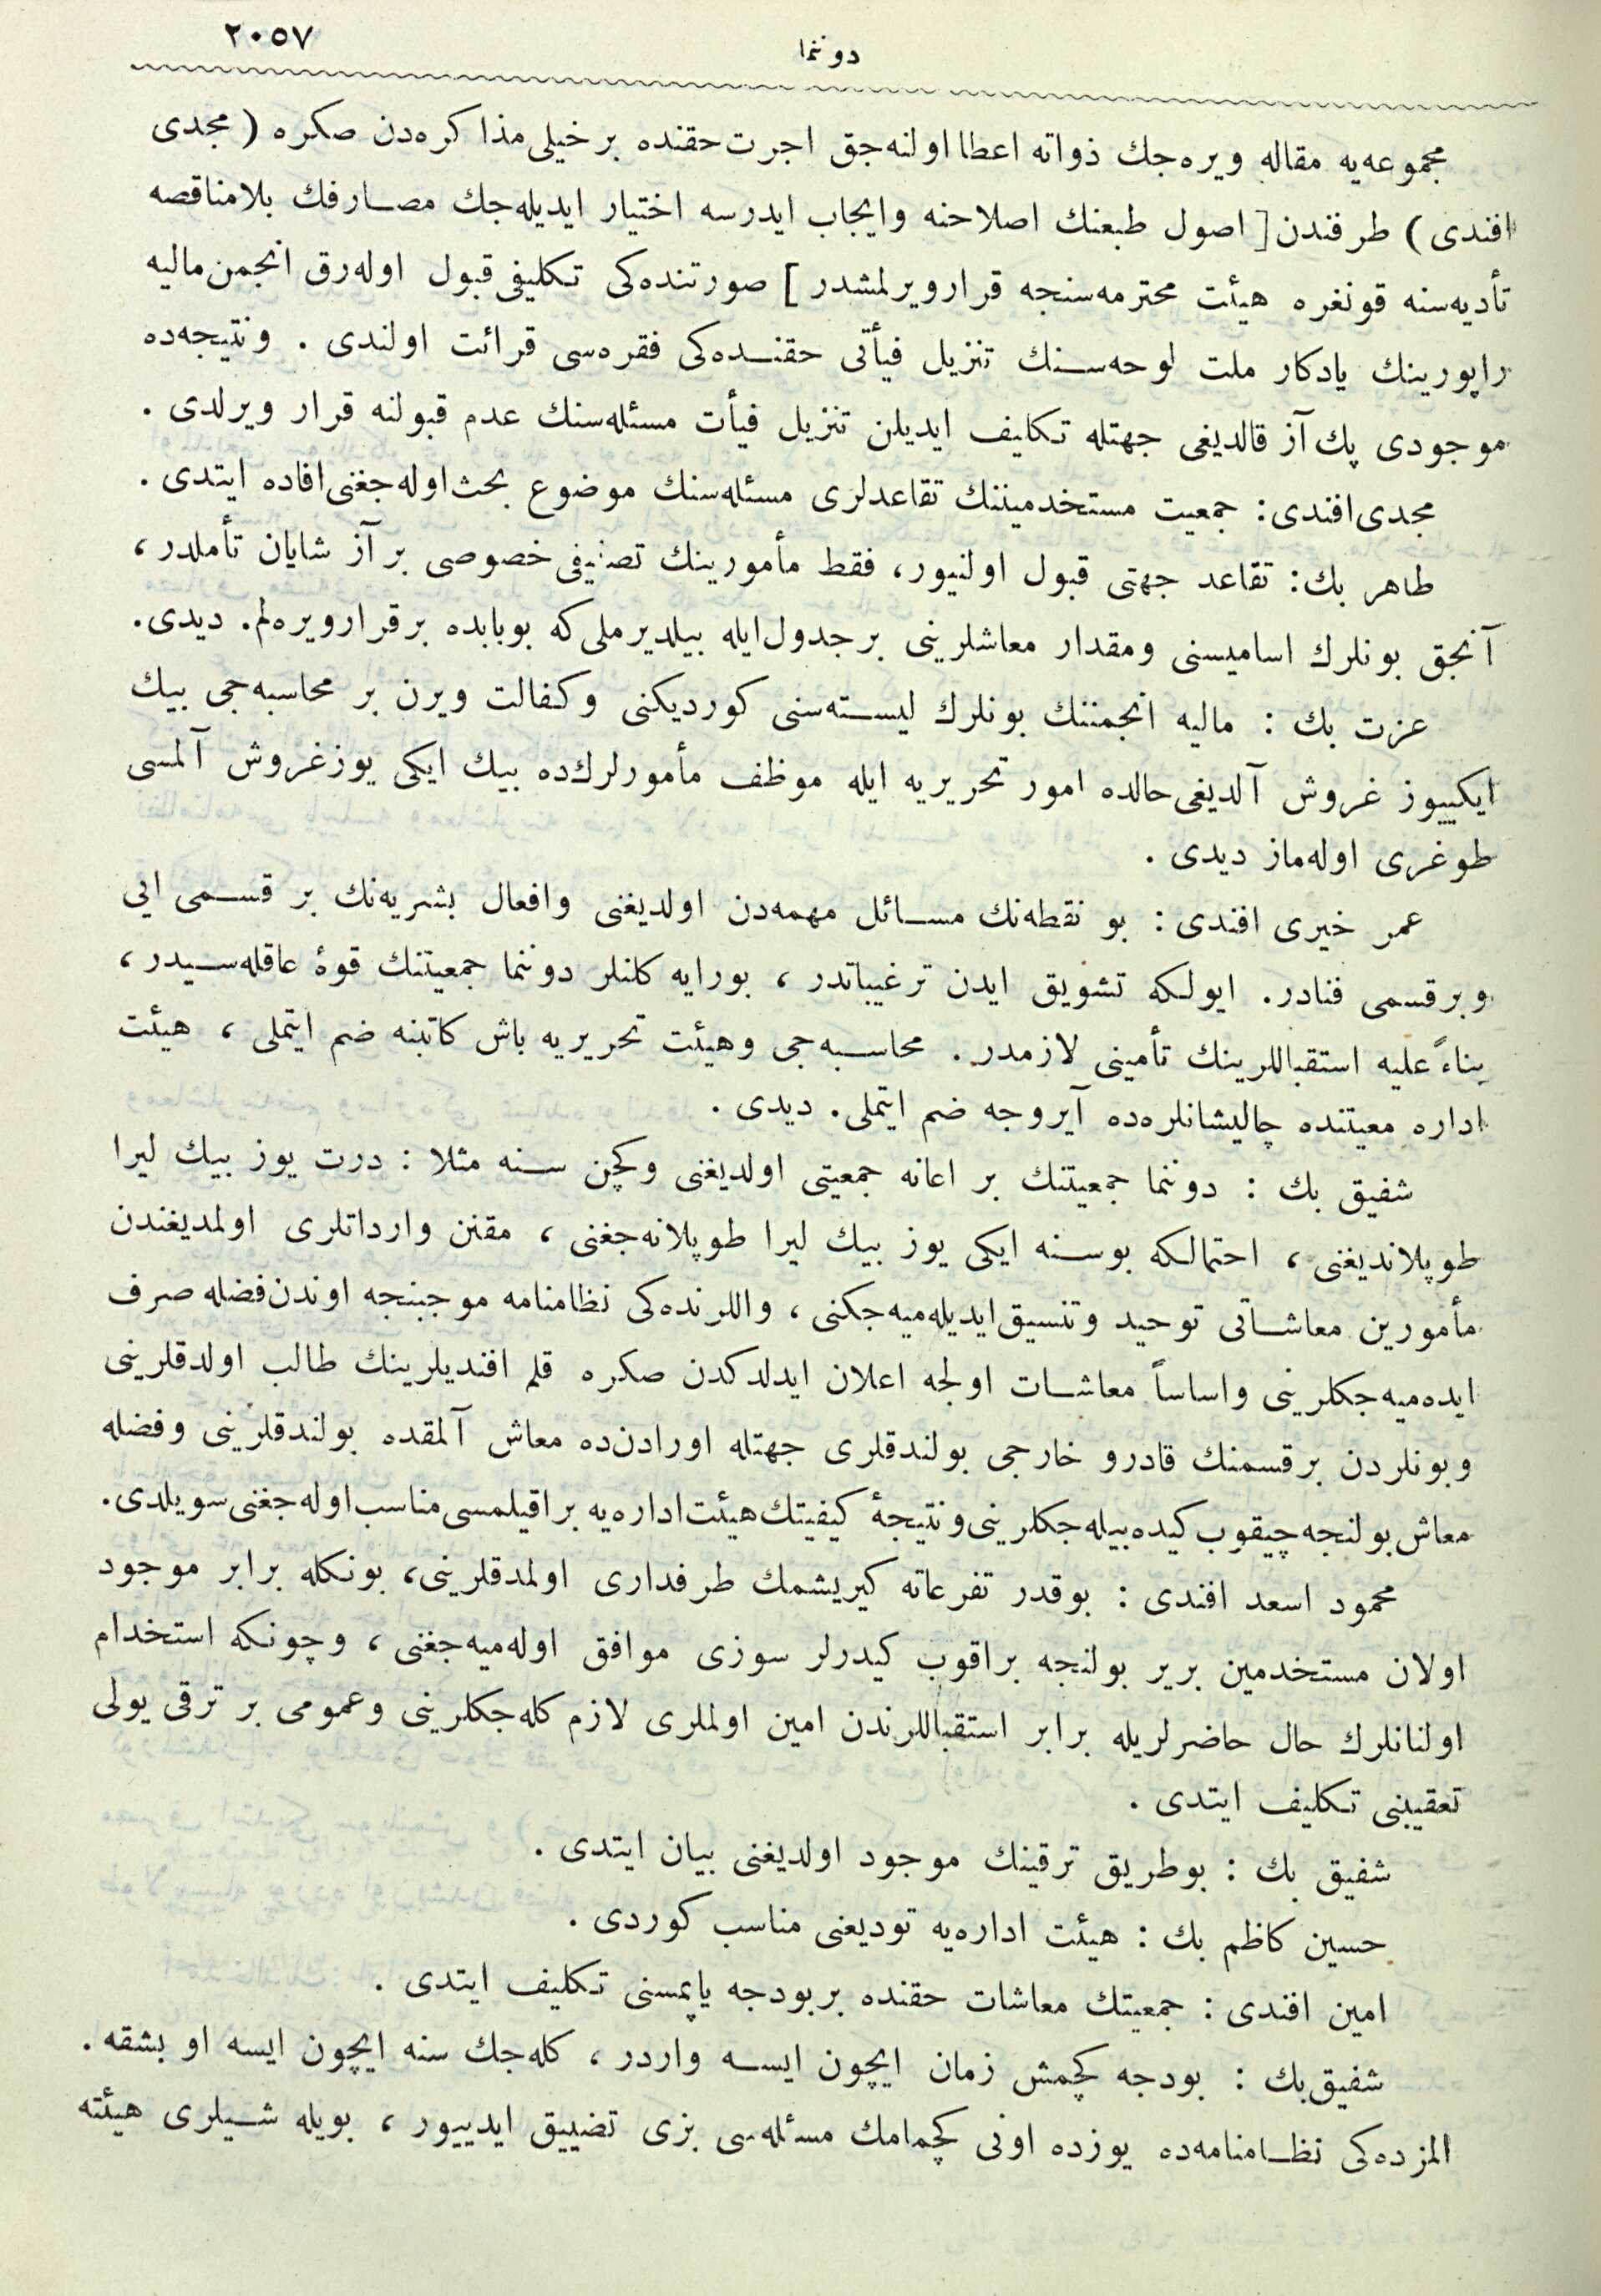 ٢٠٥٧
دوننما
مجموعه‌يه مقاله ويره‌جك ذواته اعطا اولنه‌جق اجرت حقنده بر خيلى مذاكره‌دن صكره ( مجدى
افندى ) طرفندن [ اصول طبعنك اصلاحنه وايجاب ايدرسه اختيار ايديله‌جك مصارفك بلامناقصه
تأديه‌سنه قونغره هيئت محترمه‌سنجه قرار ويرلمشدر ] صورتنده‌كى تكليفى قبول اوله‌رق انجمن ماليه
راپورينك يادكار ملت لوحه‌سنك تنزيل فيأتى حقنده‌كى فقره‌سى قرائت اولندى . ونتيجه‌ده
موجودى پك آز قالديغى جهتله تكليف ايديلن تنزيل فيأت مسئله‌سنك عدم قبولنه قرار ويرلدى .
مجدى افندى : جمعيت مستخدميننك تقاعدلرى مسئله‌سنك موضوع بحث اوله‌جغنى افاده ايتدى .
طاهر بك : تقاعد جهتى قبول اولنيور ، فقط مأمورينك تصنيفى خصوصى بر آز شايان تأملدر ،
آنجق بونلرك اساميسنى ومقدار معاشلرينى بر جدول ايله بيلديرملى كه بوبابده بر قرار ويره‌لم . ديدى .
عزت بك : ماليه انجمننك بونلرك ليسته‌سنى كورديكنى وكفالت ويرن بر محاسبه‌جى بيك
ايكييوز غروش آلديغى حالده امور تحريريه ايله موظف مأمورلرك‌ده بيك ايكى يوز غروش آلمسى
طوغرى اوله‌ماز ديدى .
عمر خيرى افندى : بو نقطه‌نك مسائل مهمه‌دن اولديغنى وافعال بشريه‌نك بر قسمى ايى
وبر قسمى فنادر . ايولكه تشويق ايدن ترغيباتدر ، بورايه كلنلر دوننما جمعيتنك قوۀ عاقله‌سيدر ،
بناءً عليه استقباللرينك تأمينى لازمدر . محاسبه‌جى وهيئت تحريريه باش كاتبنه ضم ايتملى ، هيئت
اداره معيتنده چاليشانلره‌ده آيروجه ضم ايتملى . ديدى .
شفيق بك : دوننما جمعيتنك بر اعانه جمعيتى اولديغنى وكچن سنه مثلا : درت يوز بيك ليرا
طوپلانديغنى ، احتمالكه بوسنه ايكى يوز بيك ليرا طوپلانه‌جغنى ، مقنن وارداتلرى اولمديغندن
مأمورين معاشاتى توحيد وتنسيق ايديله‌ميه‌جكنى ، واللرنده‌كى نظامنامه موجبنجه اوندن فضله صرف
ايده‌ميه‌جكلرينى واساساً معاشات اولجه اعلان ايدلدكدن صكره قلم افنديلرينك طالب اولدقلرينى
وبونلردن بر قسمنك قادرو خارجى بولندقلرى جهتله اورادن‌ده معاش آلمقده بولندقلرينى وفضله
معاش بولنجه چيقوب كيده‌بيله‌جكلرينى ونتيجۀ كيفيتك هيئت اداره‌يه براقيلمسى مناسب اوله‌جغنى سويلدى .
محمود اسعد افندى : بوقدر تفرعاته كيريشمك طرفدارى اولمدقلرينى ، بونكله برابر موجود
اولان مستخدمين برير بولنجه براقوب كيدرلر سوزى موافق اوله‌ميه‌جغنى ، وچونكه استخدام
اولنانلرك حال حاضرلريله برابر استقباللرندن امين اولملرى لازم كله‌جكلرينى وعمومى بر ترقى يولى
تعقيبنى تكليف ايتدى .
شفيق بك : بوطريق ترقينك موجود اولديغنى بيان ايتدى .
حسين كاظم بك : هيئت اداره‌يه توديعنى مناسب كوردى .
امين افندى : جمعيتك معاشات حقنده بر بودجه ياپمسنى تكليف ايتدى .
شفيق بك : بودجه كچمش زمان ايچون ايسه واردر ، كله‌جك سنه ايچون ايسه او بشقه .
المزده‌كى نظامنامه‌ده يوزده اونى كچمامك مسئله‌سى بزى تضييق ايدييور ، بويله شيلرى هيئته